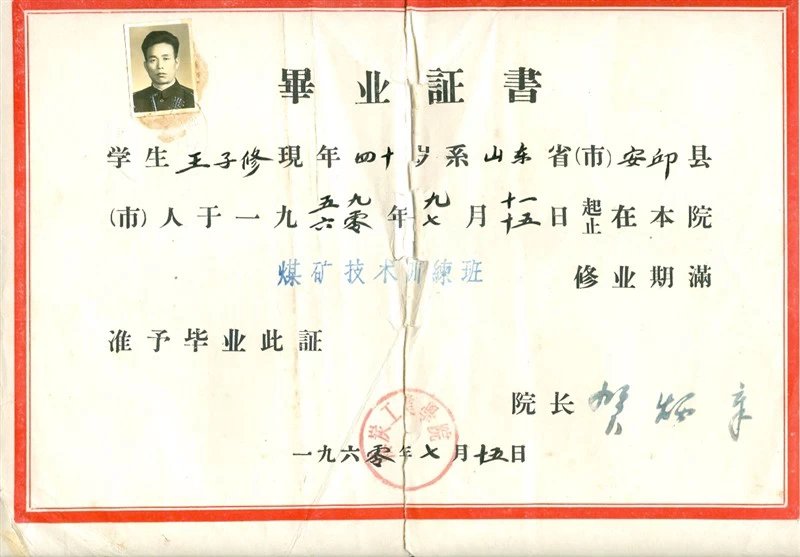 畢业証書
学生王子修現年四十岁系山东省(市)安邱县
(市)人于一九五九年九月十一日起在本院
六零 七 十五 止
煤矿技术训練班 修业期滿
准予毕业此証
院长 贺炳章
炭工業學院
一九六零年七月十五日